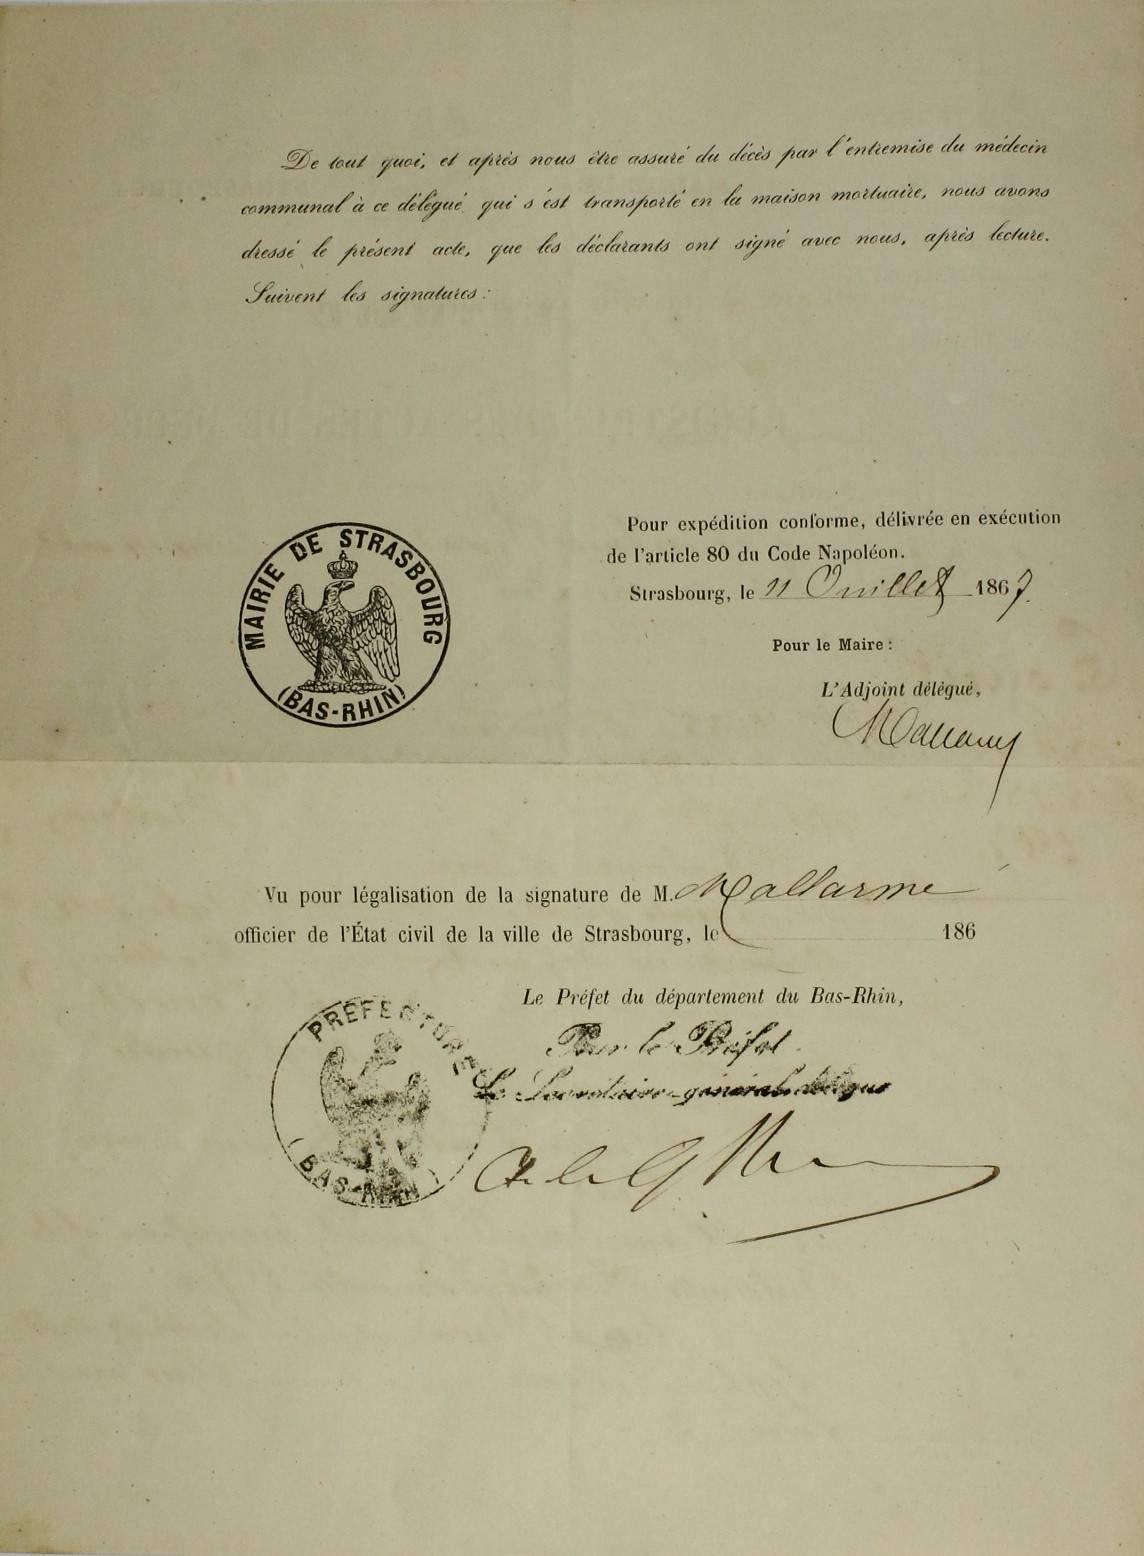 De tout quoi, et après nous être assuré du décès par l'entremise du médecin
communal à ce délégué qui s'est transporté en la maison mortuaire, nous avons
dressé le présent acte, que les déclarants ont signé avec nous, après lecture.
Suivent les signatures :
MAIRIE DE STRASBOURG
(BAS-RHIN)
Pour expédition conforme, délivrée en exécution
de l'article 80 du Code Napoléon.
Strasbourg, le 11 Juillet 1867.
Pour le Maire :
L'Adjoint délégué,
Mallarmé
Vu pour légalisation de la signature de M. Mallarmé
officier de l'État civil de la ville de Strasbourg, le 186
Le Préfet du département du Bas-Rhin,
Pour le Préfet
Le Secrétaire-général délégué
PRÉFECTURE
(BAS-RHIN)